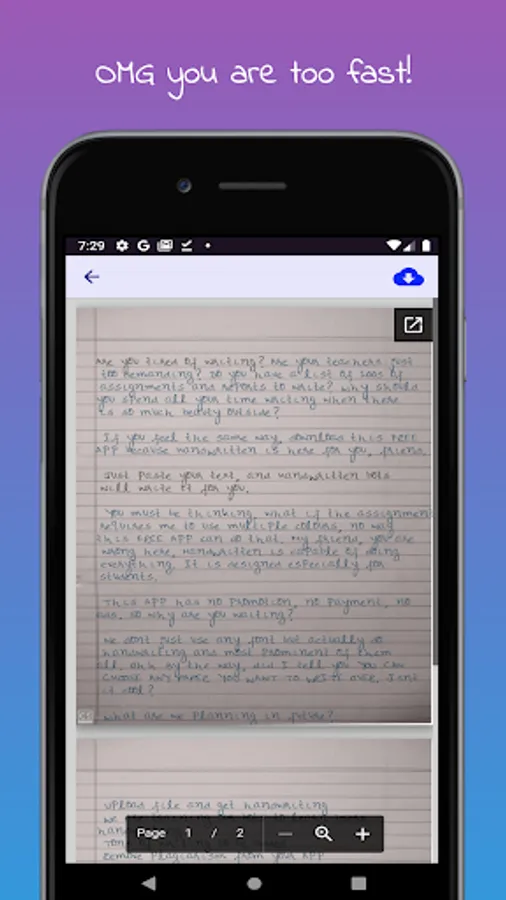 OMG you are too fast!
7:29
Are you tired of writing? Are your teachers just
too demanding? Do you have a list of 100s of
assignments and reports to write? Why should
you spend all your time writing when there
is so much beauty outside?
If you feel the same way, download this FREE
APP because handwritten is here for you, friend.
Just paste your text, and handwritten bots
will write it for you.
You must be thinking, what if the assignment
requires me to use multiple colours, no way
this FREE APP can do that. My friend, you are
wrong here, handwritten is capable of doing
everything. It is designed especially for
students.
This APP has no promotion, no payment, no
so why are you waiting?
We dont just use any font but actually do
handwriting and most prominent of them
all. Ahh by the way, did I tell you YOU CAN
CHOOSE ANY PAGE YOU WANT TO WRITE OVER, Isnt
it cool?
What are we planning in future?
Upload file and get handwriting
We
Page 1 / 2
plagiarism from your APP